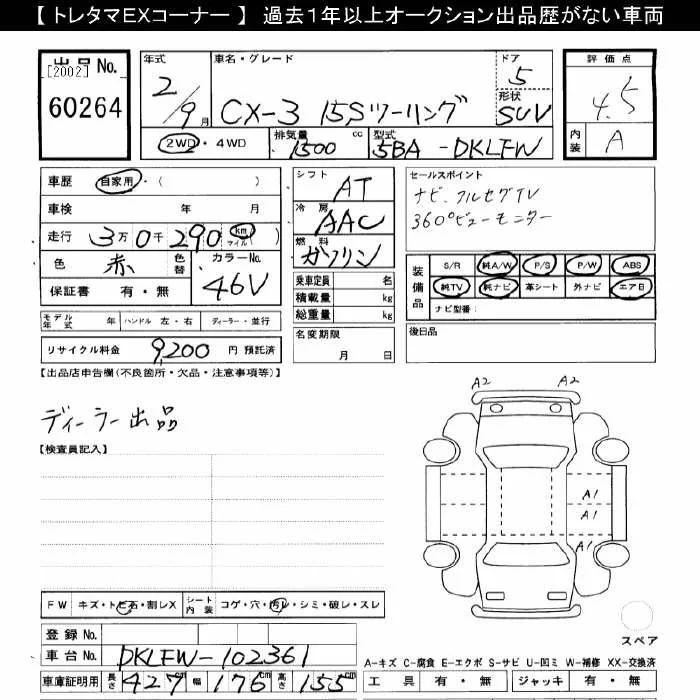 【 トレタマEXコーナー 】 過去1年以上オークション出品歴がない車両
出品 No.
[2002]
60264
年式
2/9月
車名・グレード
CX-3 15Sツーリング
ドア
5
形状
SUV
評価点
4.5
内装
A
2WD・4WD
排気量
1500 cc
型式
5BA-DKLFW
車歴 自家用・( )
車検 年 月
走行 3万0千290 km マイル ( )
色 赤 色替 カラーNo. 46V
保証書 有・無
シフト AT
冷房 AAC
燃料 ガソリン
乗車定員 名
積載量 kg
総重量 kg
名変期限
月 日
セールスポイント
ナビ、フルセグTV
360°ビューモニター
装備品
S/R 純A/W P/S P/W ABS
純TV 純ナビ 革シート 外ナビ エアB
ナビ型番:
後日品
モデル年式 年 ハンドル 左・右 ディーラー・並行
リサイクル料金 9,200 円 預託済
【出品店申告欄(不良箇所・欠品・注意事項等)】
ディーラー出品
【検査員記入】
A2 A2
A1
A1
A1
FW キズ・トビ石・割レX シート内装 コゲ・穴・汚レ・シミ・破レ・スレ
登録 No.
車台 No. DKLFW-102361
車庫証明用 長さ 427 cm 幅 176 cm 高さ 155 cm
スペア
A-キズ C-腐食 E-エクボ S-サビ U-凹ミ W-補修 XX-交換済
工具 有・無 ジャッキ 有・無